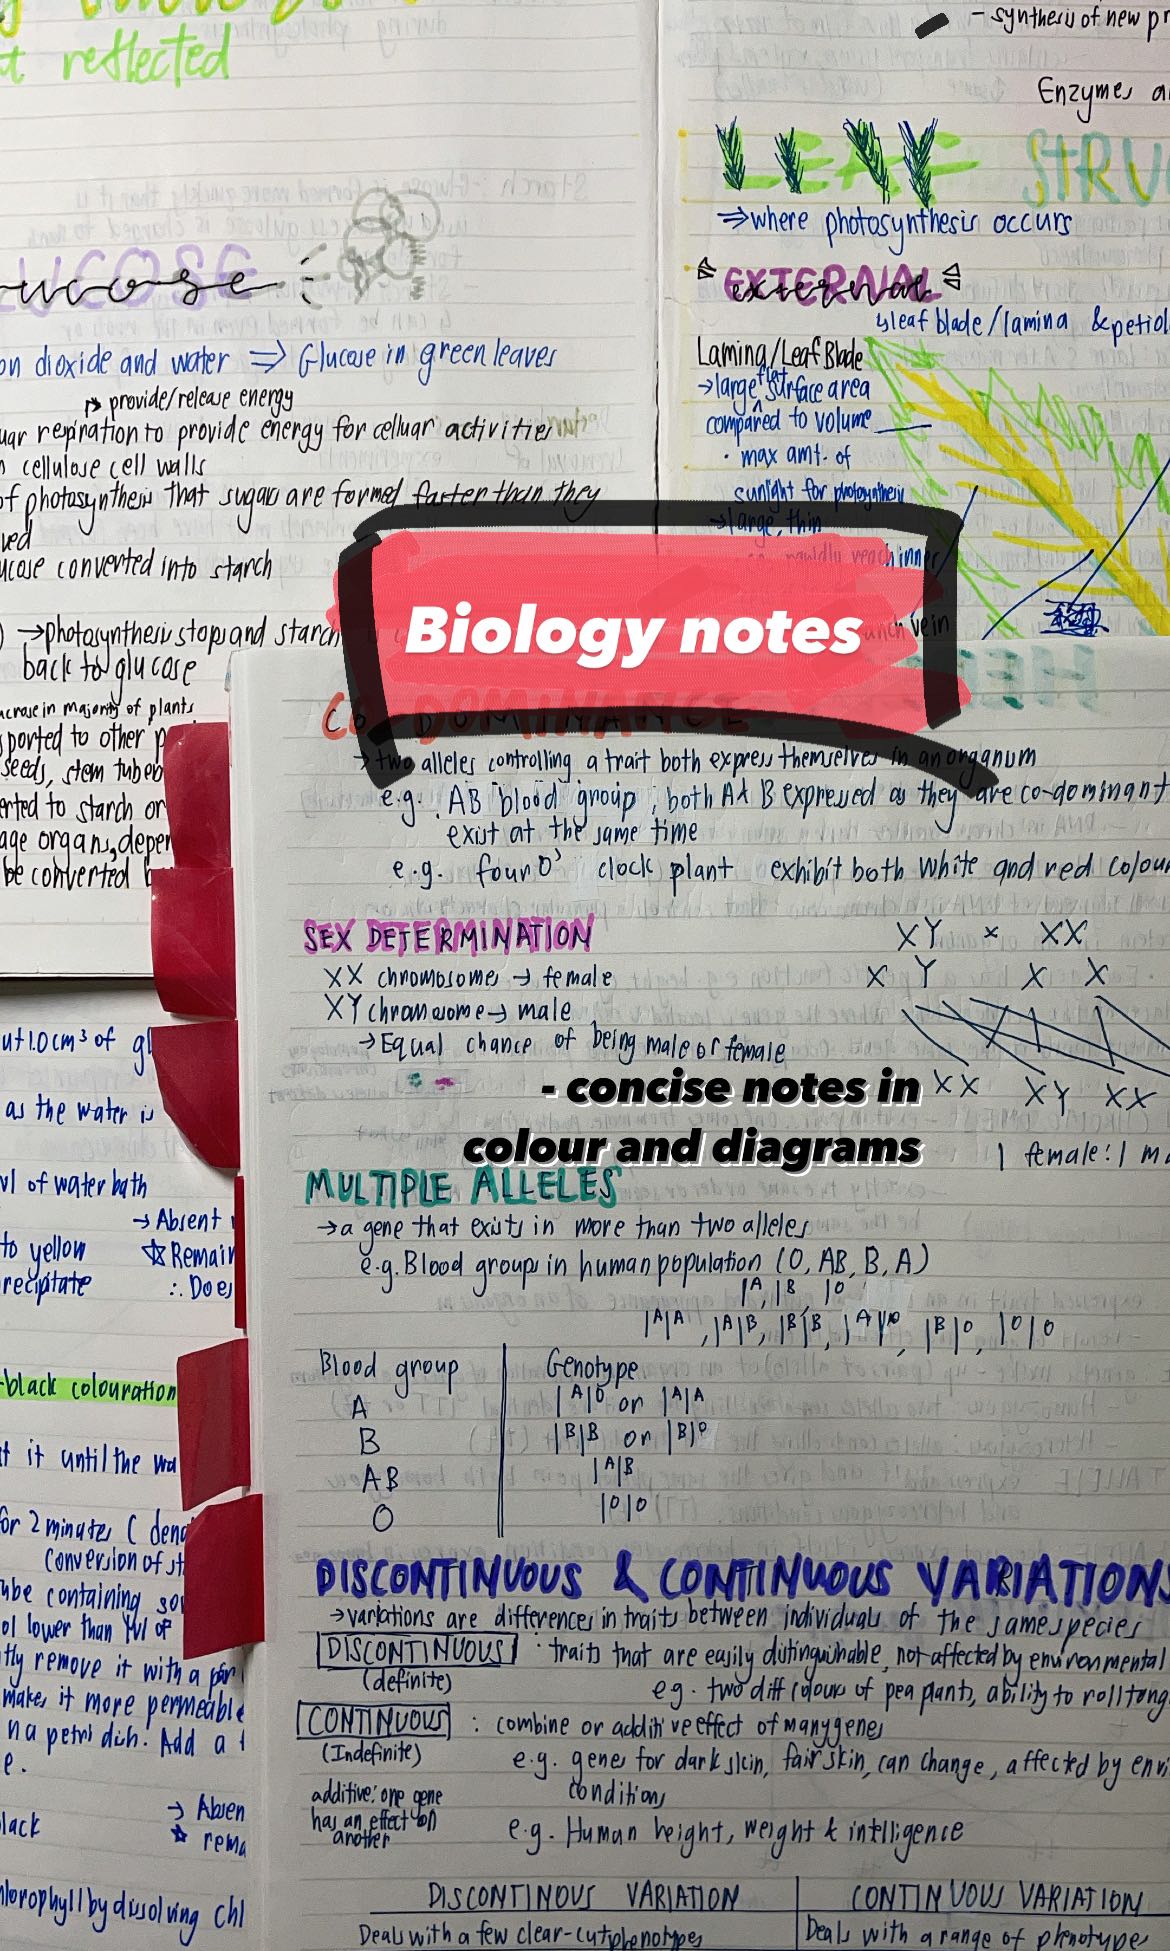 t reflected
UCOSE
ucose
on dioxide and water ⇒ Glucose in green leaves
↳ provide/release energy
uar repiration to provide energy for celluar activities
n cellulose cell walls
of photosynthesis that sugars are formed faster than they
ved
ucose converted into starch
) → photosynthesis stops and starch
back to glucose
ucrose in majority of plants
sported to other p
seeds, stem tubeb
erted to starch or
age organs, depen
be converted b
- synthesis of new pr
Enzymes a
LEAF STRU
⇒ where photosynthesis occurs
EXTERNAL
external
↳ leaf blade/lamina & petiol
Lamina/Leaf Blade
→ large flat surface area
compared to volume
· max amt. of
sunlight for photosynthesis
→ large, thin
rapidly reach inner
vein
Biology notes
CO DOMINANCE
→ two alleles controlling a trait both express themselves in an organum
e.g. AB blood group, both A & B expressed as they are co-dominant
exist at the same time
e.g. four O' clock plant exhibit both white and red colour
SEX DETERMINATION
XX chromosomes → female
XY chromosome → male
→ Equal chance of being male or female
XY × XX
X Y X X
XX XY XX
1 female : 1 ma
- concise notes in
colour and diagrams
MULTIPLE ALLELES
→ a gene that exists in more than two alleles
e.g. Blood groups in human population (O, AB, B, A)
Iᴬ, Iᴮ, Iᴼ
IᴬIᴬ, IᴬIᴮ, IᴮIᴮ, IᴬIᴼ, IᴮIᴼ, IᴼIᴼ
Blood group Genotype
A IᴬIᴼ or IᴬIᴬ
B IᴮIᴮ or IᴮIᴼ
AB IᴬIᴮ
O IᴼIᴼ
DISCONTINUOUS & CONTINUOUS VARIATIONS
→ variations are differences in traits between individuals of the same species
DISCONTINUOUS : traits that are easily distinguishable, not affected by environmental
(definite) eg. two diff colours of pea plants, ability to roll tong
CONTINUOUS : combine or additive effect of many genes
(Indefinite) e.g. genes for dark skin, fair skin, can change, affected by envi
condition
additive: one gene
has an effect on
another
e.g. Human height, weight & intelligence
DISCONTINOUS VARIATION CONTINUOUS VARIATION
Deals with a few clear-cut phenotypes Deals with a range of phenotypes
ut 1.0 cm³ of gl
as the water is
vl of water bath
→ Absent
to yellow ☆ Remain
recipitate ∴ Does
-black colouration
t it until the wa
for 2 minutes (dena
conversion of st
ube containing so
ol lower than lvl of
tly remove it with a
makes it more permeable
n a petri dish. Add a
e.
→ Absen
lack ☆ rema
hlorophyll by dissolving chl